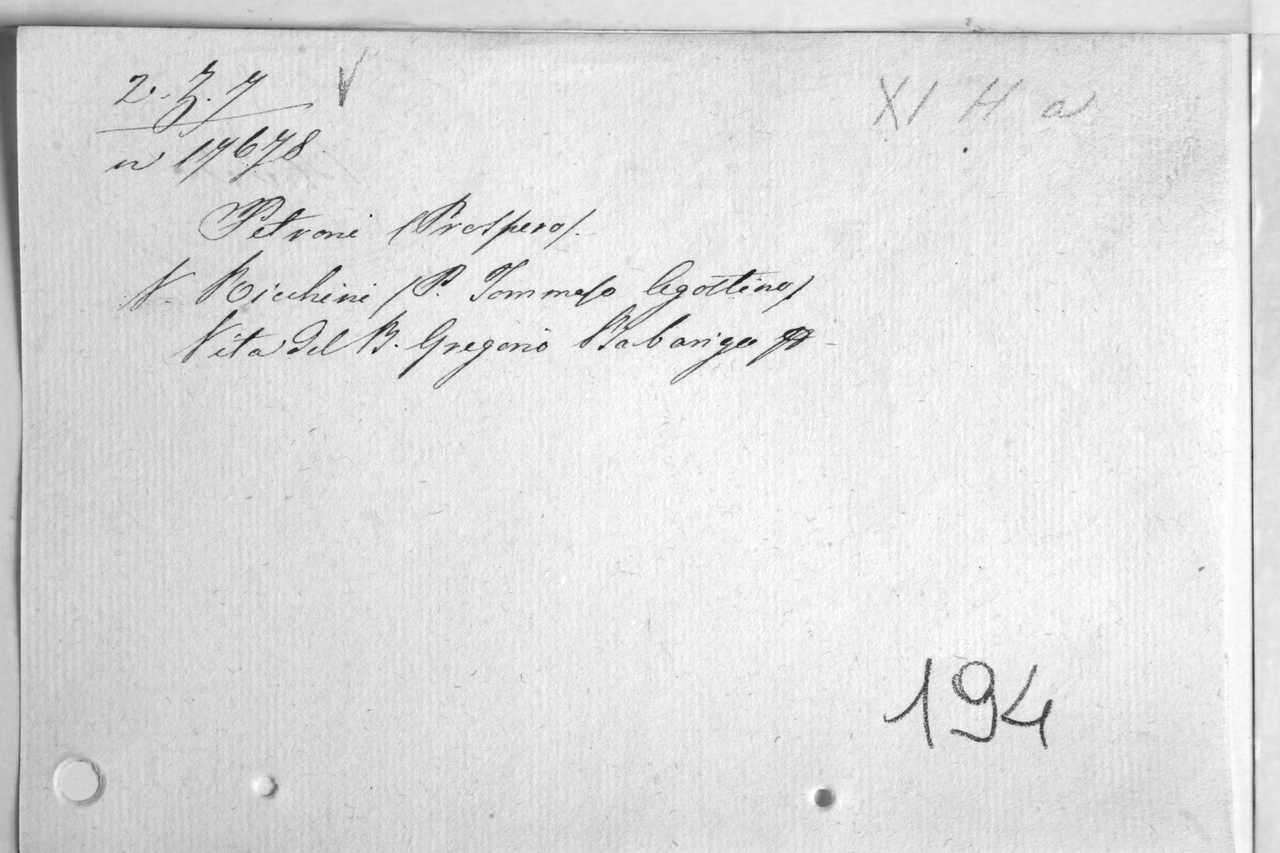 2. Z. 7
XI H a
n 17678
Petroni (Prospero).
V. Ricchini (P. Tommaso Agostino)
Vita del B. Gregorio Babarigo
194